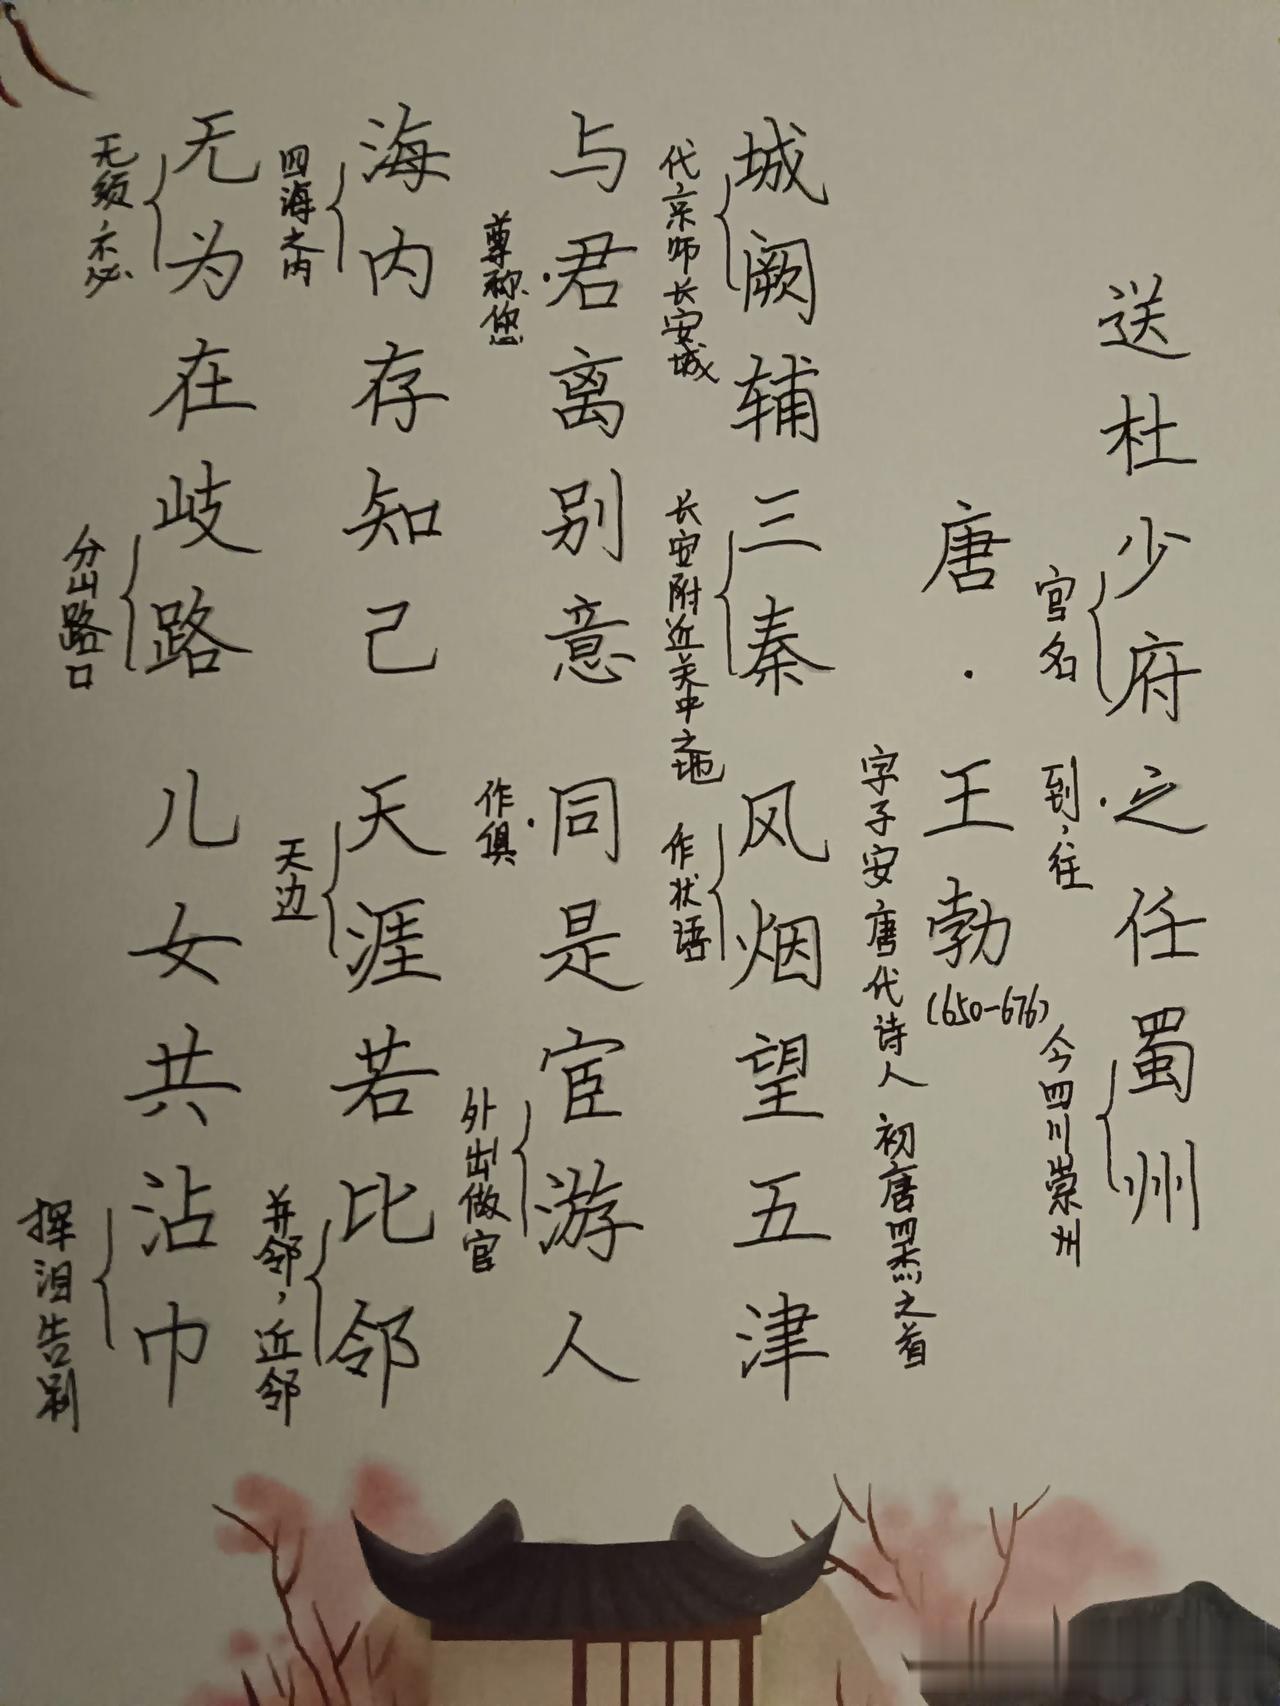 送杜少府之任蜀州
官名
到,往
今四川崇州
唐·王勃
(650-676)
字子安 唐代诗人 初唐四杰之首
城阙辅三秦 风烟望五津
代京师长安城
长安附近关中之地
作状语
与君离别意 同是宦游人
尊称您
作俱
外出做官
海内存知己 天涯若比邻
四海之内
天边
并邻,近邻
无为在歧路 儿女共沾巾
无须、不必
分岔路口
挥泪告别